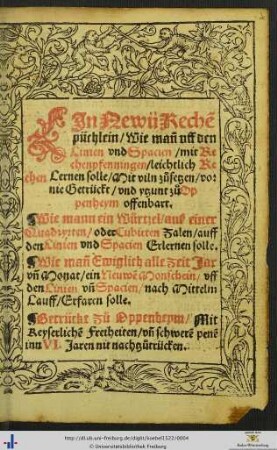 EIn Newü Rechē
püchlein / Wie mañ vff den
Linien vnd Spacien / mit Re
chenpfenningen / leichtlich Re
chen Lernen solle / Mit viln züsetzen / vor
nie Getrückt / vnd ytzunt zü Op
penheym offenbart.
Wie mann ein Würtzel / auß einer
Quadzaten / oder Cubicen Zalen / auff
den Linien vnd Spacien Erlernen solle.
Wie mañ Ewiglich alle zeit Jar
vñ Monat / ein Neuwē Monschein / vff
den Linien vñ Spacien / nach Mittelm
Lauff / Erfaren solle.
Getrückt zü Oppenheym / Mit
Keyserlichē Freiheiten / vñ schwerē penē
inn VI. Jaren nit nachgütrücken.
http://dl.ub.uni-freiburg.de/diglit/koebel1522/0004
© Universitätsbibliothek Freiburg